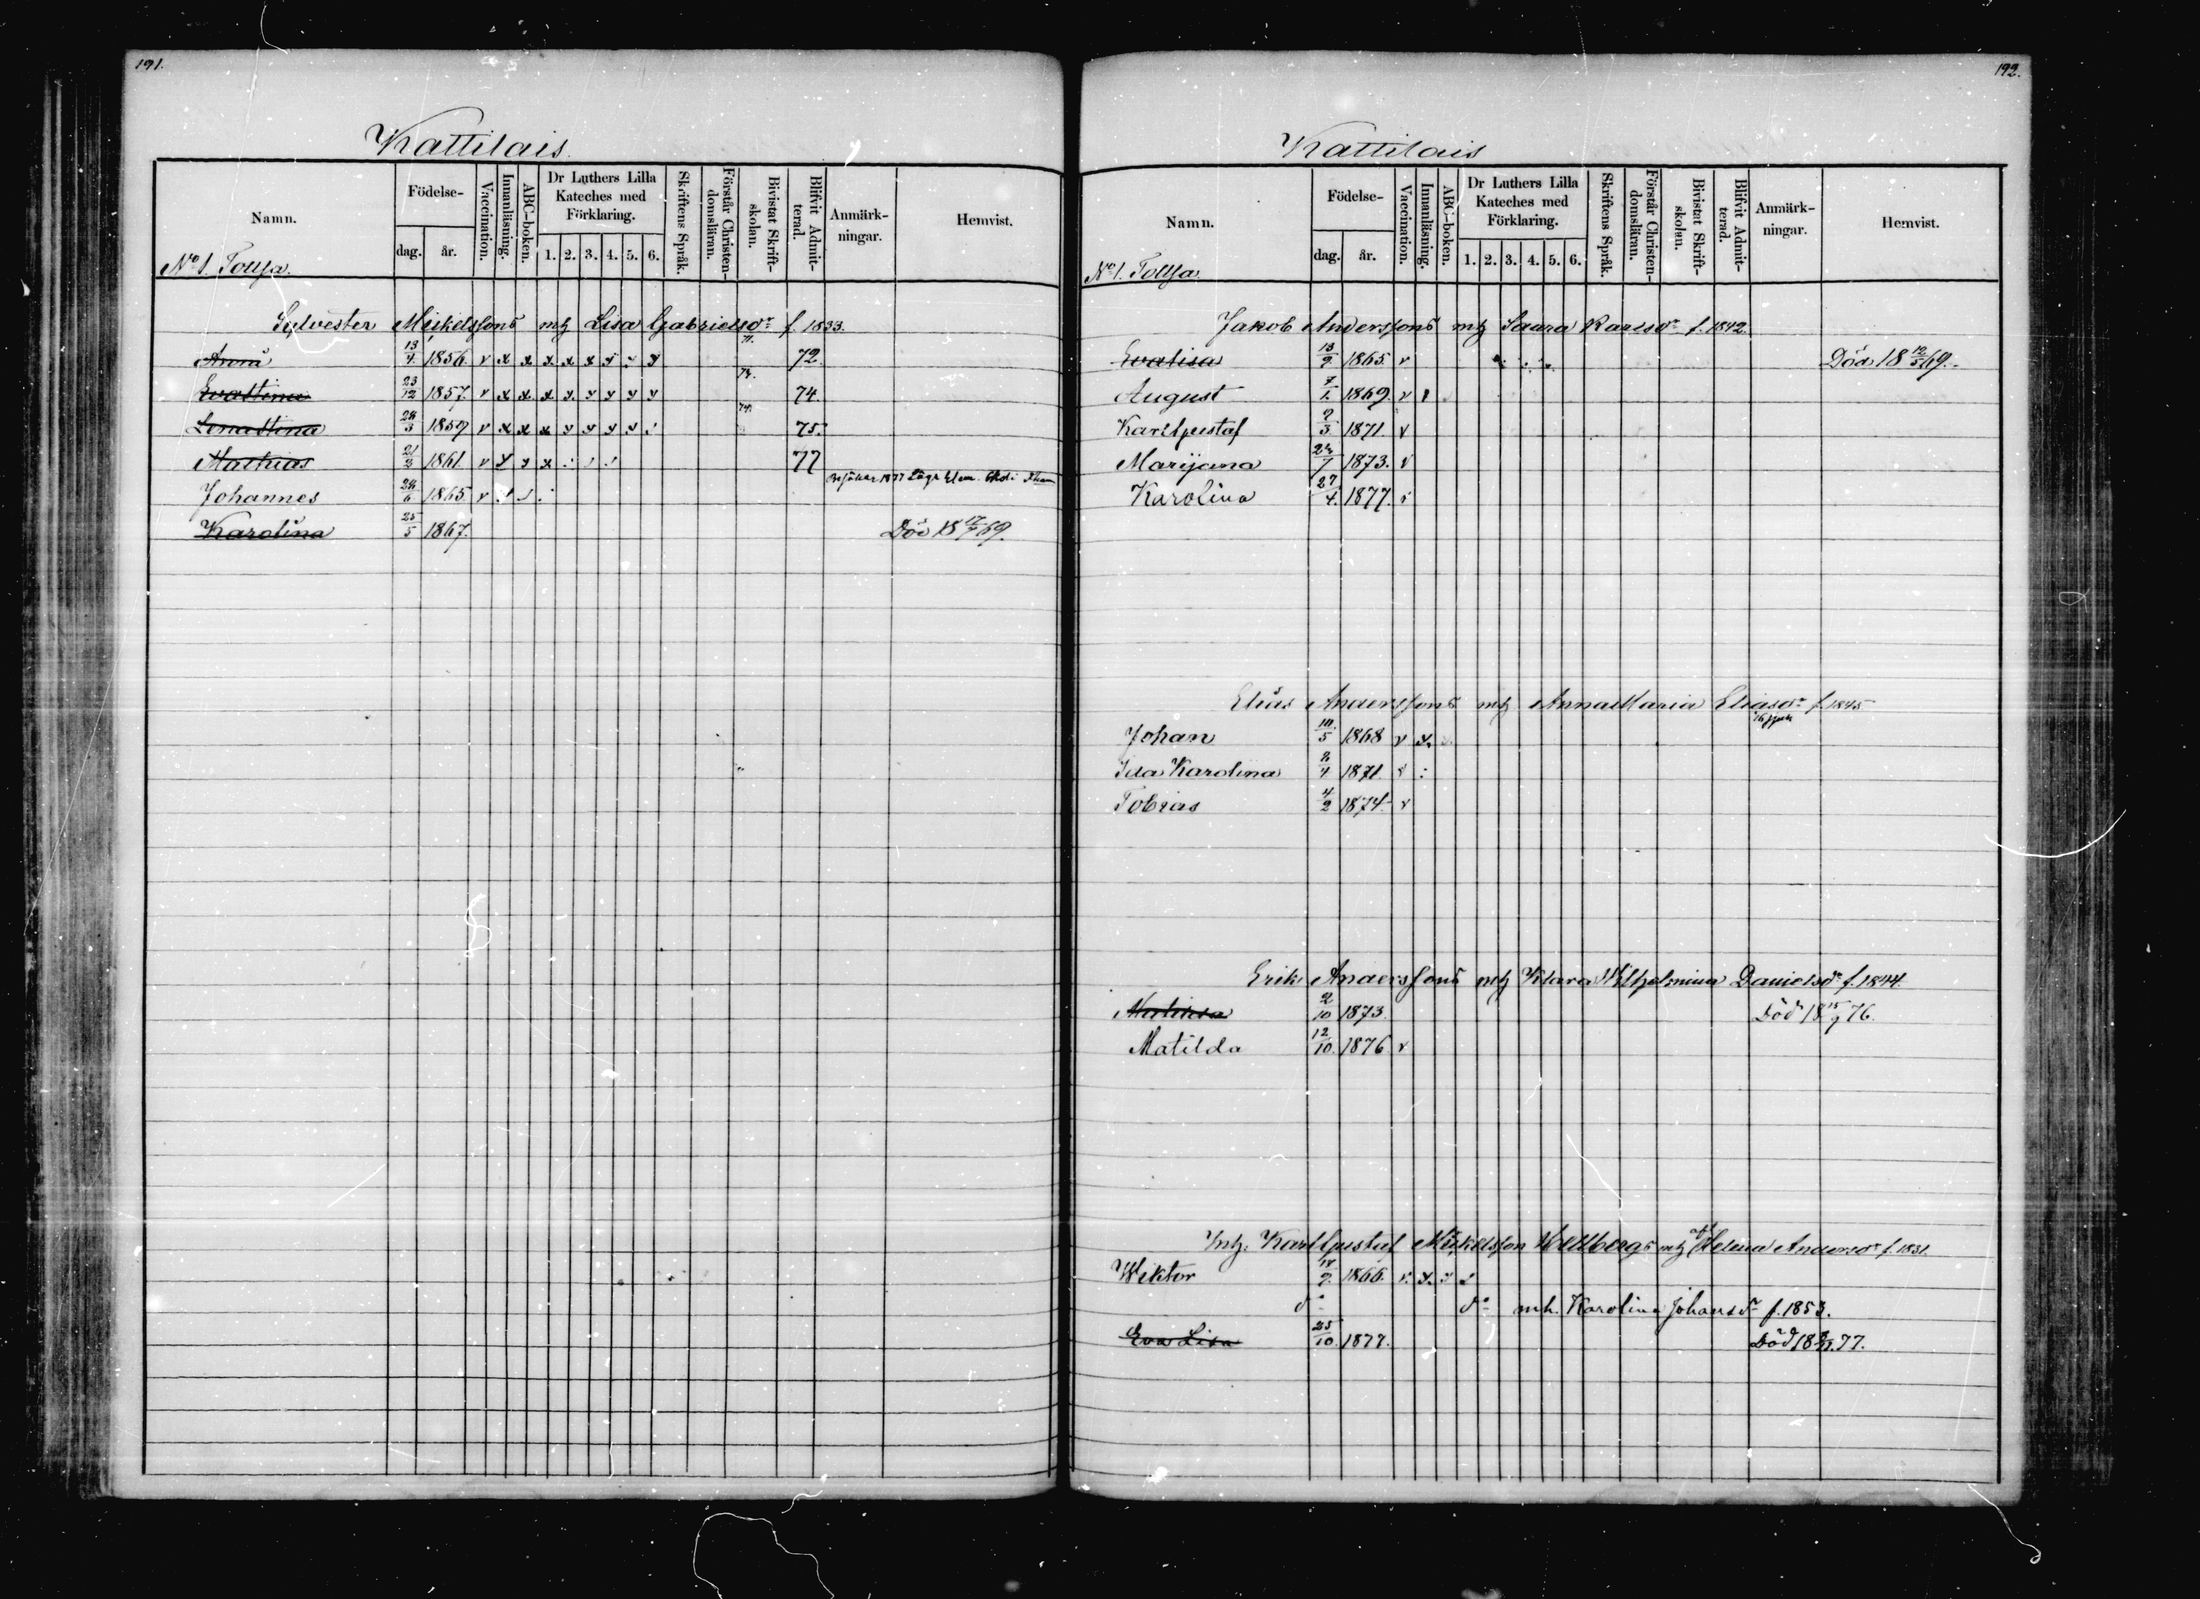 191.
Kattilais.
Namn. Födelse- Vaccination. Innanläsning. ABC-boken. Dr Luthers Lilla Kateches med Förklaring. Skriftens Språk. Förstår Christen-domsläran. Bivistat Skrift-skolan. Blifvit Admit-terad. Anmärk-ningar. Hemvist.
dag. år. 1. 2. 3. 4. 5. 6.
No 1.
Sylvester Mickelssons mtz Lisa Gabrielsdr f. 1833.
Anna 13/4. 1856. v x x x x x y : y 72.
Evastina 23/12 1857. v x x x y. y y y y 74. 74.
Lenastina 24/3 1859 v x x x y y y y ! 74. 75.
Mathias 21/2 1861. v y y x 77
Johannes 24/6 1865 v 1877
Karolina 25/5 1867. Död 18 69.
192.
Kattilais
Namn. Födelse- Vaccination. Innanläsning. ABC-boken. Dr Luthers Lilla Kateches med Förklaring. Skriftens Språk. Förstår Christen-domsläran. Bivistat Skrift-skolan. Blifvit Admit-terad. Anmärk-ningar. Hemvist.
dag. år. 1. 2. 3. 4. 5. 6.
No 1.
Jakob Anderssons mtz Saara Karlsdr f. 1842.
Evalisa 13/9 1865. v Död 18 12/5 69.
August 7/1. 1869. v
Karl Gustaf 2/3 1871. v
Marijana 24/7 1873. v
Karolina 27/4. 1877. v
Elias Anderssons mtz Anna Maria Eliasdr f. 1845
Johan 10/5 1868 v x.
Ida Karolina 2/4 1871 v :
Tobias 4/2 1874. v
Erik Anderssons mtz Klara Wilhelmina Danielsdr f. 1844.
2/10 1873. Död 18 15/9 76.
Matilda 12/10. 1876. v
Inh. Karl Gustaf Mickelsson Wellbergs mtz Helena Andersdr f. 1831.
Wiktor 17/9. 1866. v. x. y
do do mh. Karolina Johansdr f. 1853.
Eva Lisa 25/10. 1877. Död 18 77.